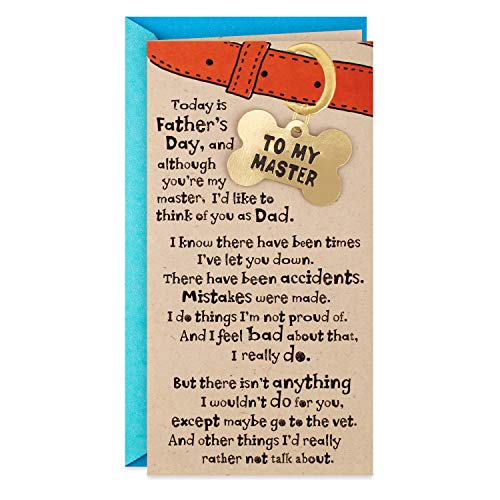 Today is
Father's
Day, and
although
you're my
master, I'd like to
think of you as Dad.
TO MY
MASTER
I know there have been times
I've let you down.
There have been accidents.
Mistakes were made.
I do things I'm not proud of.
And I feel bad about that,
I really do.
But there isn't anything
I wouldn't do for you,
except maybe go to the vet.
And other things I'd really
rather not talk about.